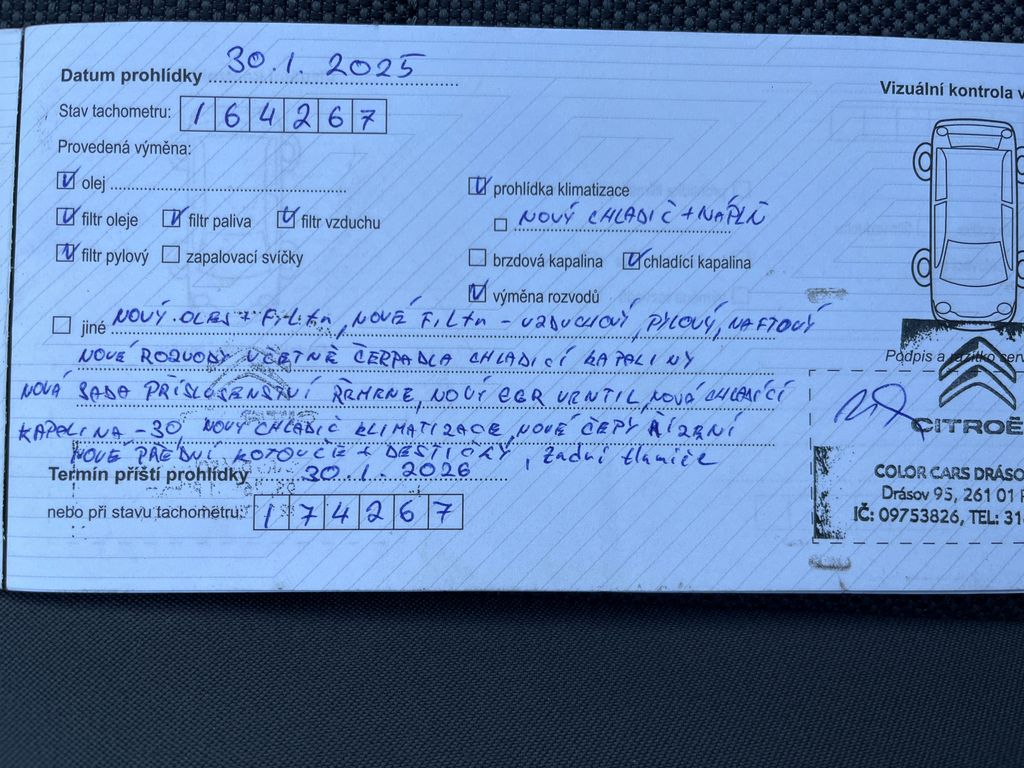 Datum prohlídky 30.1. 2025
Vizuální kontrola v
Stav tachometru: 164267
Provedená výměna:
olej
prohlídka klimatizace
filtr oleje filtr paliva filtr vzduchu
NOVÝ CHLADIČ + NÁPLŇ
filtr pylový zapalovací svíčky
brzdová kapalina chladící kapalina
výměna rozvodů
jiné NOVÝ OLEJ + FILtR, NOVÉ FILtR - VZDUCHOVÝ, PYLOVÝ, NAFTOVÝ
NOVÉ ROZVODY VČETNĚ ČERPADLA CHLADICÍ KAPALINY
NOVÁ SADA PŘÍSLUŠENSTVÍ ŘEMENE, NOVÝ EGR VENTIL, NOVÁ CHLADÍCÍ
KAPALINA -30, NOVÝ CHLADIČ KLIMATIZACE, NOVÉ ČEPY ŘÍZENÍ
NOVÉ PŘEDNÍ KOTOUČE + DESTIČKY, zadní tlumiče
Podpis a razítko serv
CITROË
Termín příští prohlídky 30.1. 2026
nebo při stavu tachometru: 174267
COLOR CARS DRÁSO
Drásov 95, 261 01 P
IČ: 09753826, TEL: 31